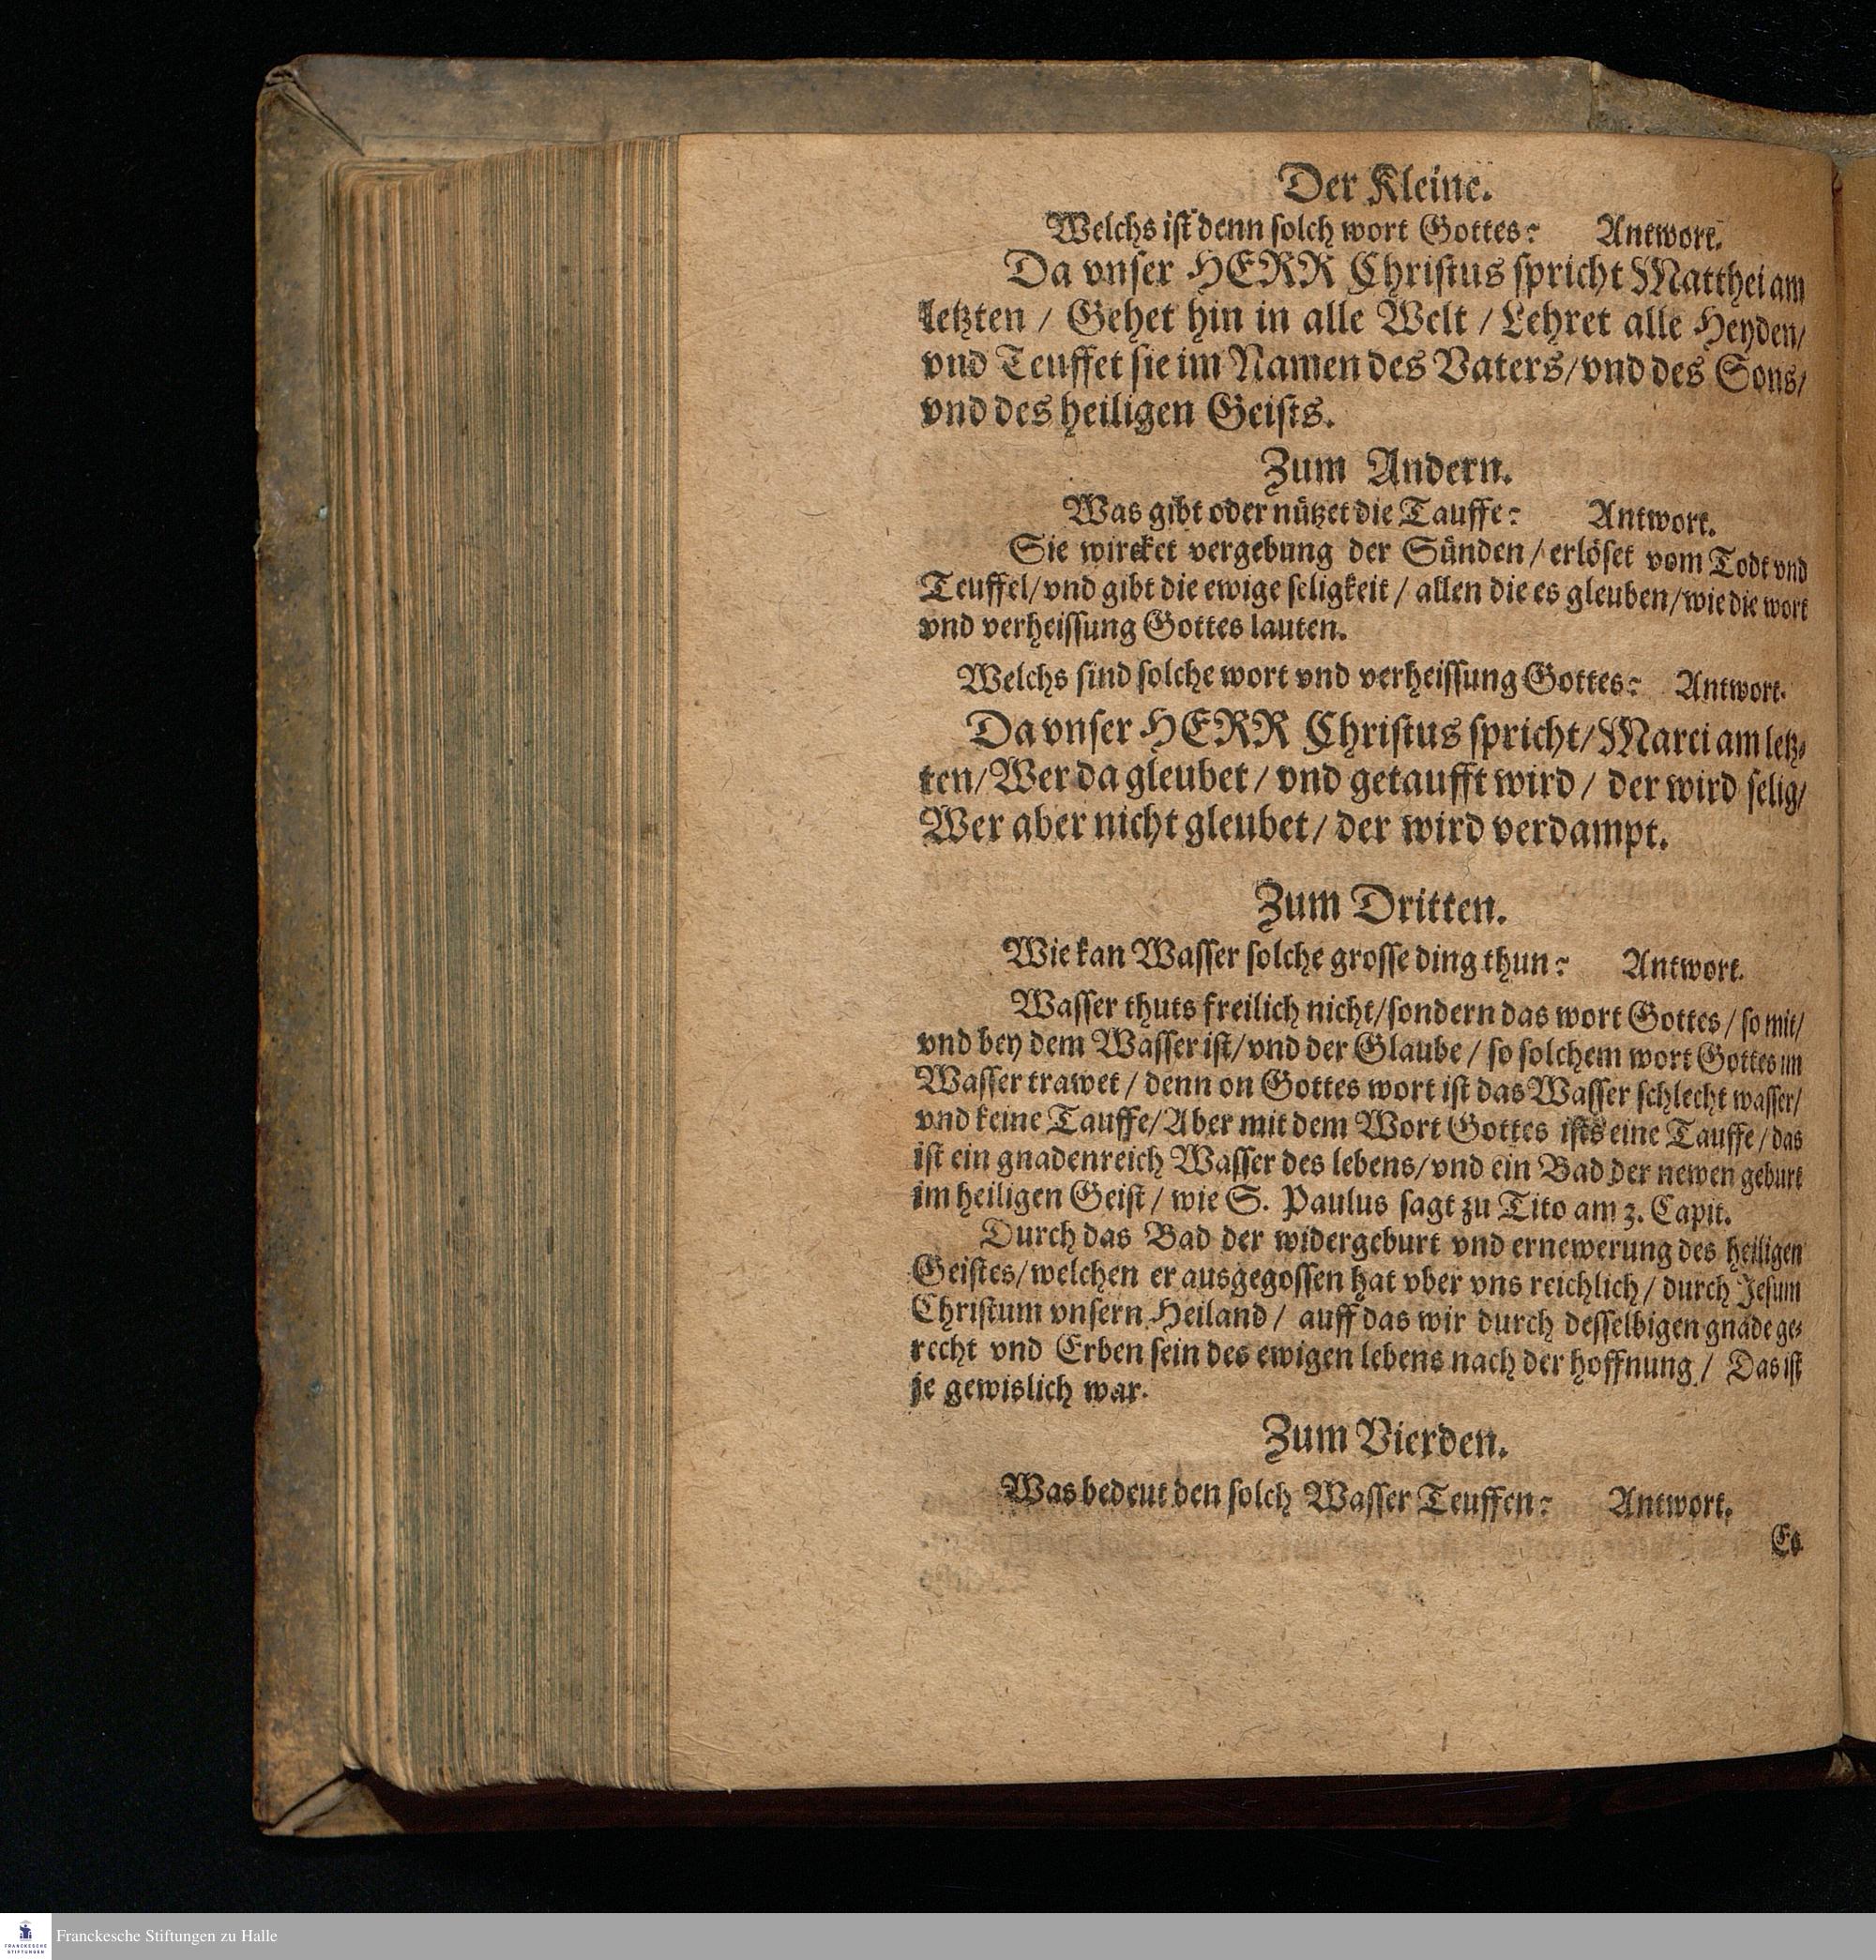 Der Kleine.
Welchs ist denn solch wort Gottes? Antwort.
Da vnser HERR Christus spricht Matthei am
letzten / Gehet hin in alle Welt / Lehret alle Heyden/
vnd Teuffet sie im Namen des Vaters/vnd des Sons/
vnd des heiligen Geists.
Zum Andern.
Was gibt oder nützet die Tauffe? Antwort.
Sie wircket vergebung der Sünden / erlöset vom Todt vnd
Teuffel/vnd gibt die ewige seligkeit / allen die es gleuben/wie die wort
vnd verheissung Gottes lauten.
Welchs sind solche wort vnd verheissung Gottes? Antwort.
Da vnser HERR Christus spricht/Marci am letz-
ten/Wer da gleubet / vnd getaufft wird / der wird selig/
Wer aber nicht gleubet / der wird verdampt.
Zum Dritten.
Wie kan Wasser solche grosse ding thun? Antwort.
Wasser thuts freilich nicht/sondern das wort Gottes / so mit/
vnd bey dem Wasser ist/vnd der Glaube / so solchem wort Gottes im
Wasser trawet / denn on Gottes wort ist das Wasser schlecht wasser/
vnd keine Tauffe/Aber mit dem Wort Gottes ists eine Tauffe / das
ist ein gnadenreich Wasser des lebens/vnd ein Bad der newen geburt
im heiligen Geist / wie S. Paulus sagt zu Tito am 3. Capit.
Durch das Bad der widergeburt vnd ernewerung des heiligen
Geistes/welchen er ausgegossen hat vber vns reichlich / durch Jesum
Christum vnsern Heiland / auff das wir durch desselbigen gnade ge-
recht vnd Erben sein des ewigen lebens nach der hoffnung / Das ist
je gewislich war.
Zum Vierden.
Was bedeut den solch Wasser Teuffen? Antwort.
Es
FRANCKESCHE
STIFTUNGEN
Franckesche Stiftungen zu Halle